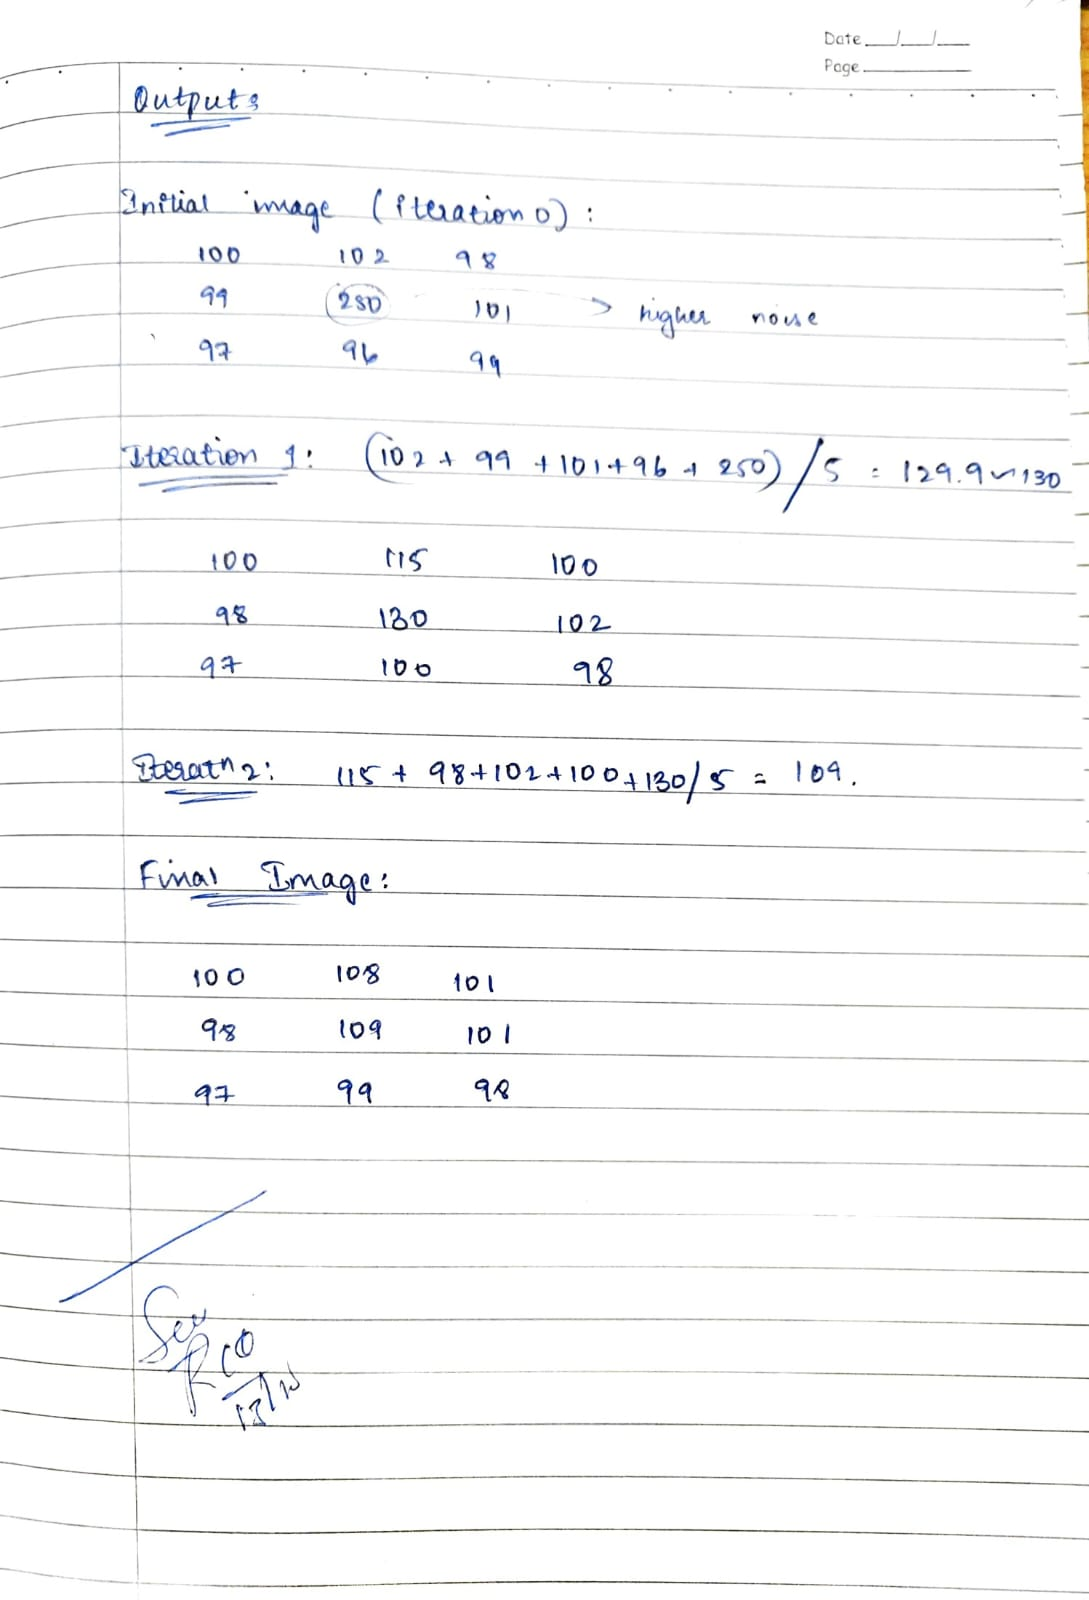 Date __/__/__
Page
Outputs
Initial image (iteration 0):
100 102 98
99 250 101 > higher noise
97 96 99
Iteration 1: (102 + 99 + 101 + 96 + 250) / 5 = 129.9 ~ 130
100 115 100
98 130 102
97 100 98
Iteratn 2: 115 + 98 + 102 + 100 + 130 / 5 = 109.
Final Image:
100 108 101
98 109 101
97 99 98